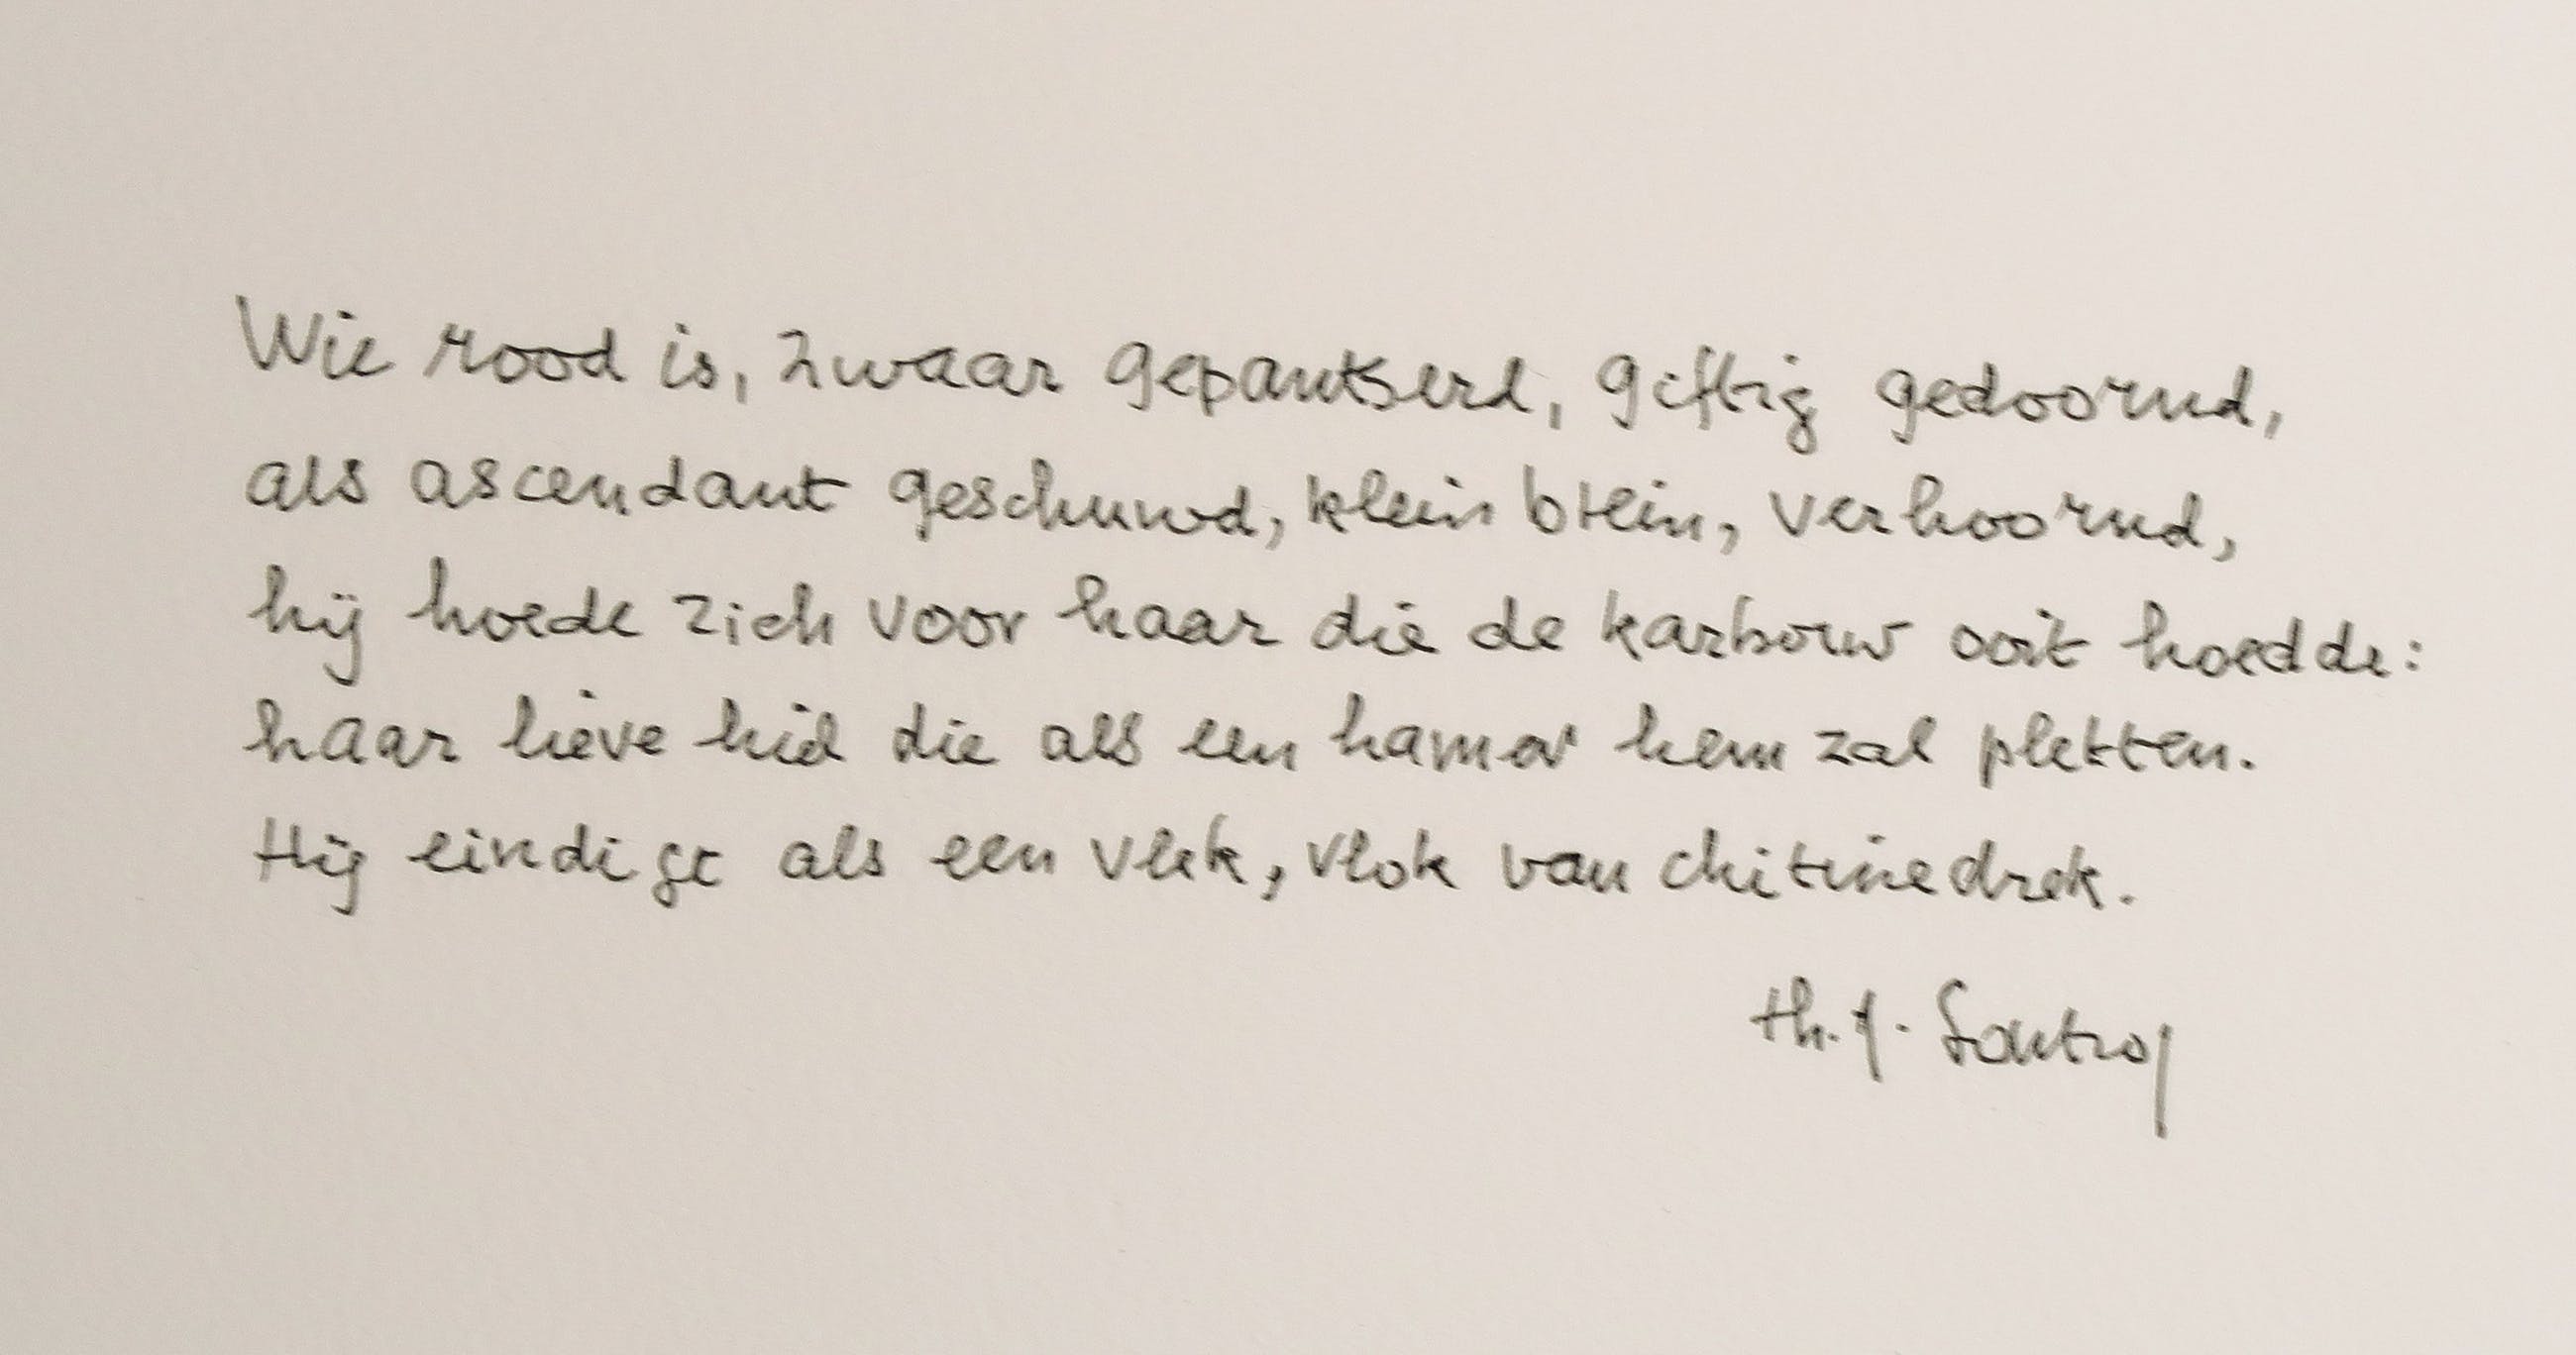 Wie rood is, zwaar gepantserd, giftig gedoornd,
als ascendant geschuwd, klein brein, verhoornd,
hij hoede zich voor haar die de karbouw ooit hoedde:
haar lieve hiel die als een hamer hem zal pletten.
Hij eindigt als een vlek, vlok van chitine drek.
th. j.